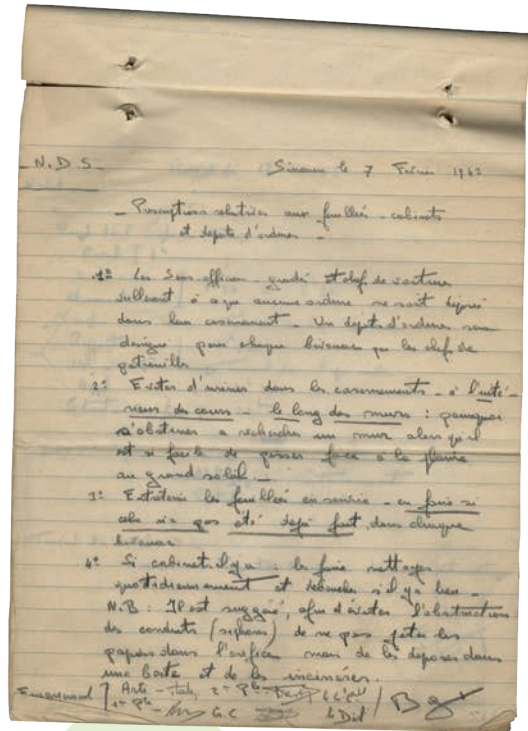 N.D.S. le 7 Février 194
- Prescriptions relatives aux feuillées - cabinets
et dépots d'ordures -
1º Les Sous officiers - gradés et chef de voiture
veilleront à que aucune ordure ne soit déposé
dans leur casernement - Un dépots d'ordures sera
désigné pour chaque bivouac par les chefs de
patrouilles
2º Eviter d'uriner dans les casernements - à l'inté-
rieur des cours - le long des murs : pourquoi
s'obstiner a rechercher un mur alors qu'il
est si facile de pisser face à la plaine
au grand soleil. -
3º Entretenir les feuillées en service - en faire si
cela n'a pas été déjà fait, dans chaque
bivouac
4º Si cabinet il y a : les faire nettoyer
quotidiennement et déboucher s'il y a lieu -
N.B : Il est suggéré, afin d'éviter l'obstruction
des conduits (siphons) de ne pas jeter les
papiers dans l'orifice mais de les déposer dans
une boite et de les incinérer.
2e
1er G.C le Dét